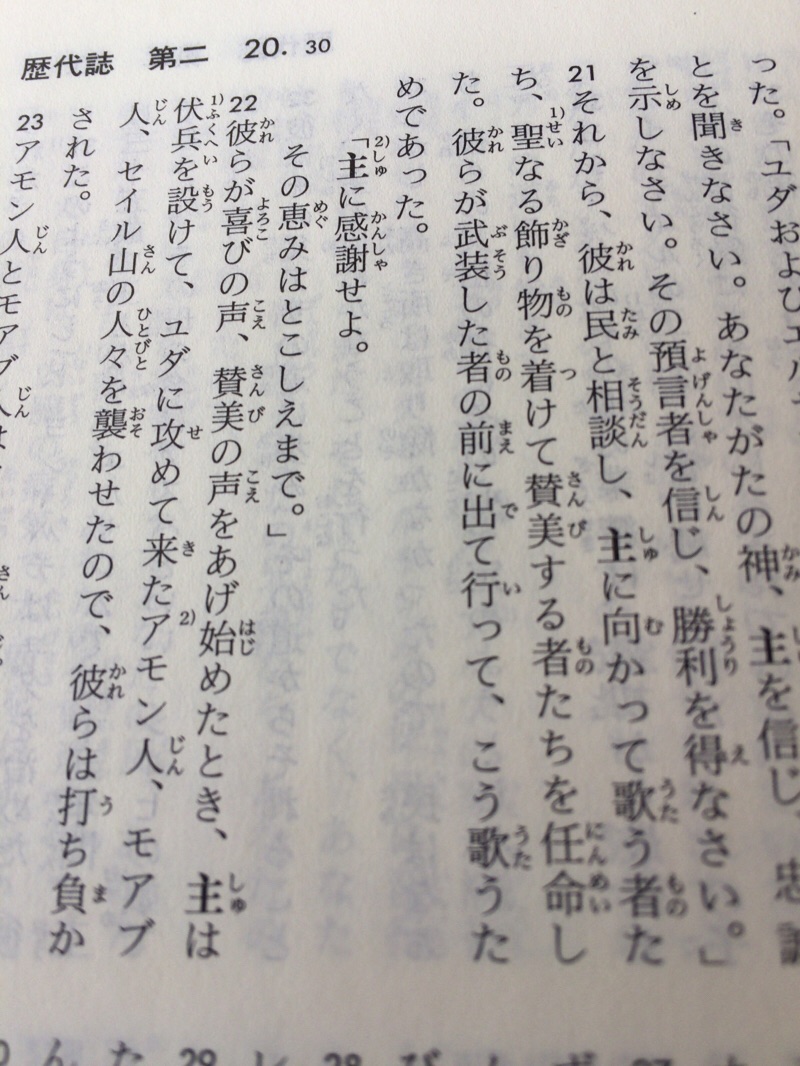 歴代誌 第二 20. 30
った。「ユダおよびエル
とを聞きなさい。あなたがたの神、主を信じ、忠
を示しなさい。その預言者を信じ、勝利を得なさい。」
21 それから、彼は民と相談し、主に向かって歌う者た
ち、1)聖なる飾り物を着けて賛美する者たちを任命し
た。彼らが武装した者の前に出て行って、こう歌うた
めであった。
2)「主に感謝せよ。
その恵みはとこしえまで。」
22 彼らが喜びの声、賛美の声をあげ始めたとき、主は
1)伏兵を設けて、ユダに攻めて来た2)アモン人、モアブ
人、セイル山の人々を襲わせたので、彼らは打ち負か
された。
23 アモン人とモアブ人は